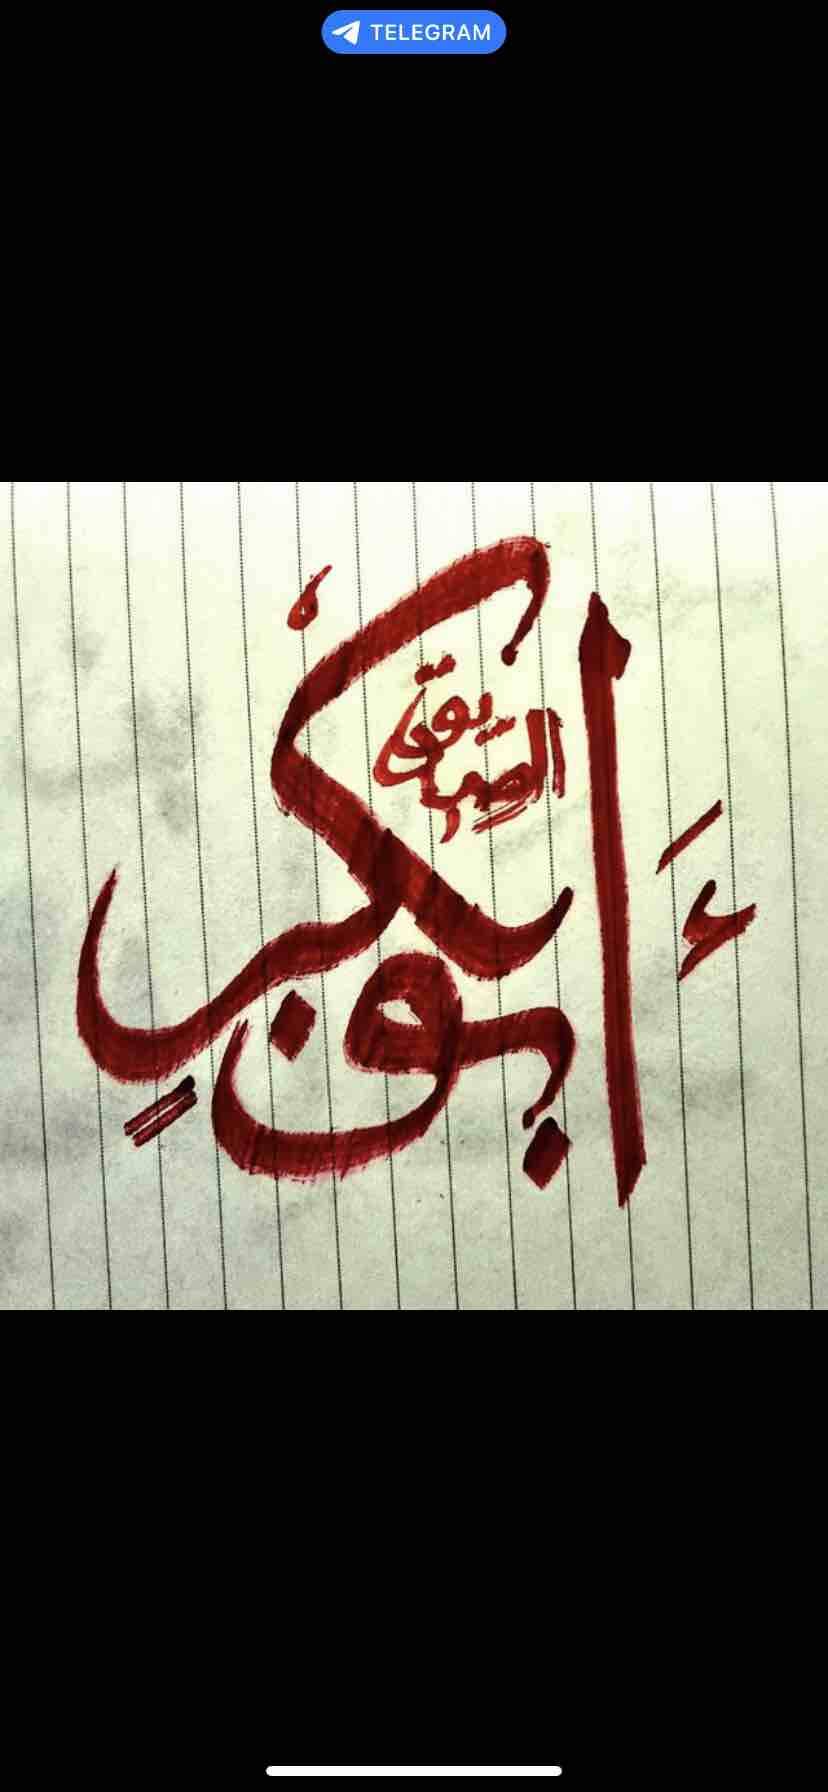 TELEGRAM
أَبو بكرٍ
الصديق